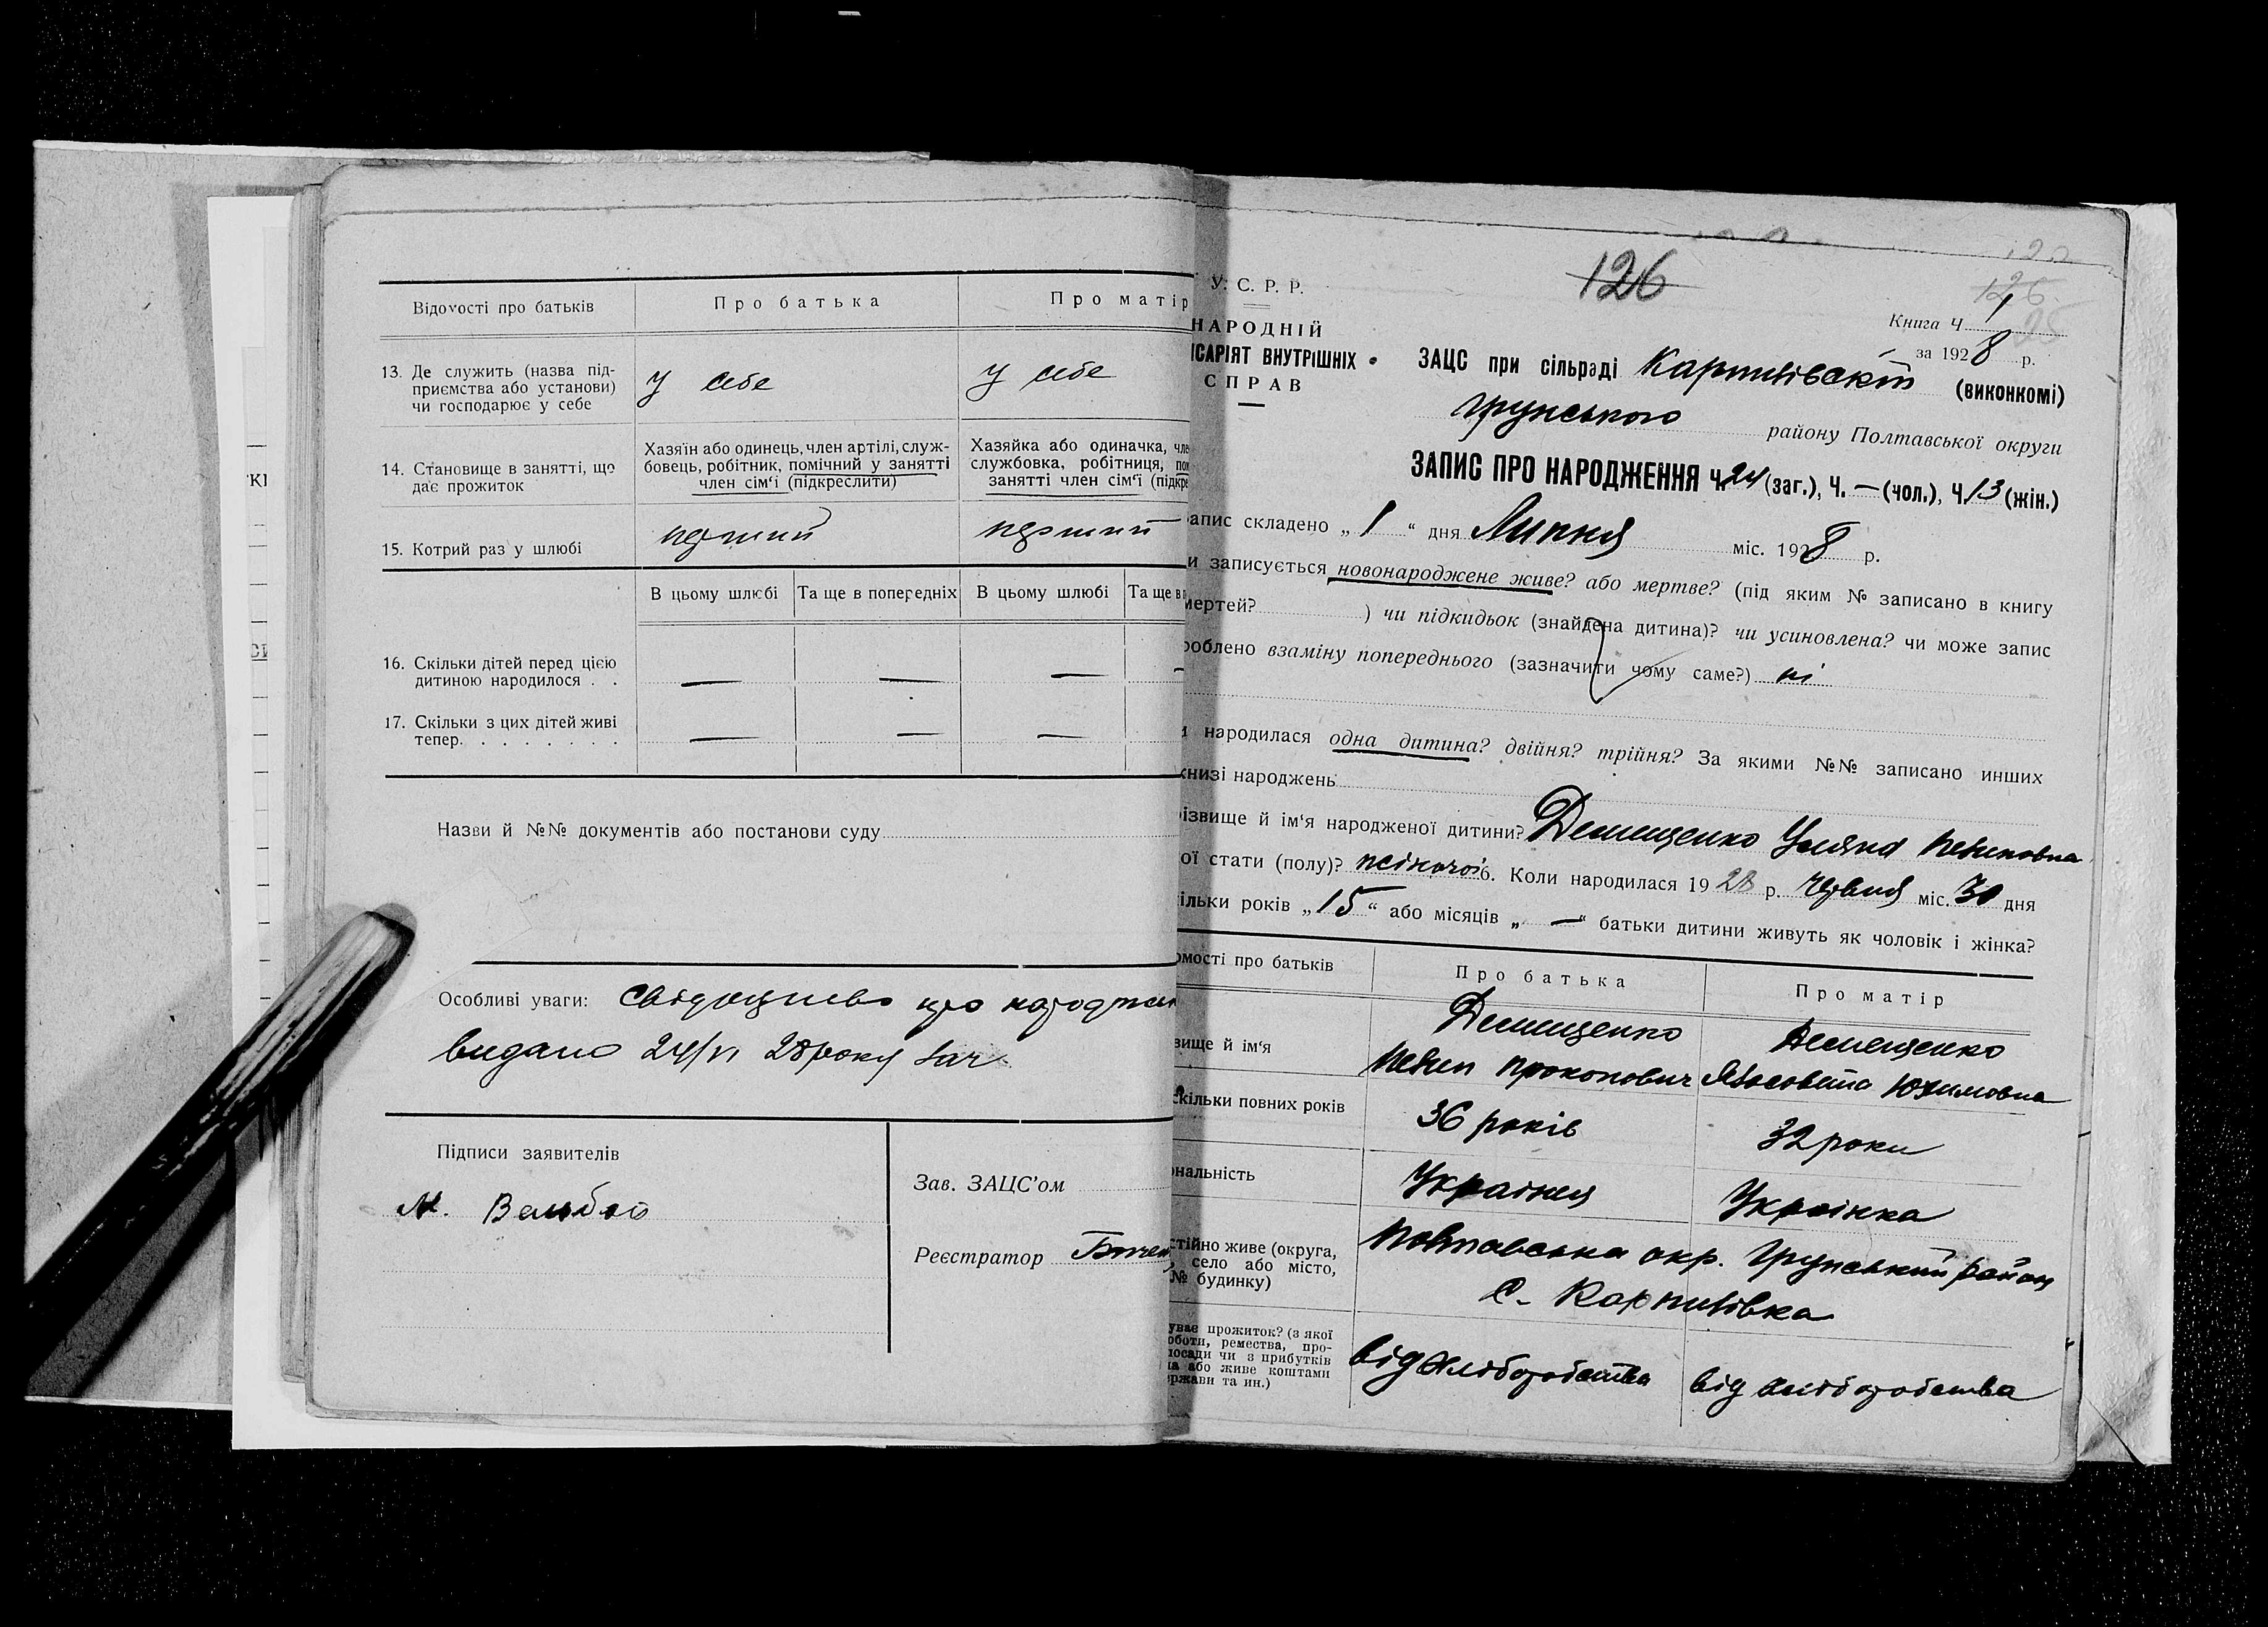 Відомості про батьків
Про батька
Про матір
13. Де служить (назва під-
приємства або установи)
чи господарює у себе
у себе
у себе
14. Становище в занятті, що
дає прожиток
Хазяїн або одинець, член артілі, служ-
бовець, робітник, помічний у занятті
член сім‘ї (підкреслити)
Хазяйка або одиначка, чле
службовка, робітниця, по
занятті член сім‘ї (підкре
15. Котрий раз у шлюбі
перший
перший
В цьому шлюбі
Та ще в попередніх
В цьому шлюбі
Та ще в п
16. Скільки дітей перед цією
дитиною народилося . .
— — — —
17. Скільки з цих дітей живі
тепер. . . . . . . .
— — —
Назви й №№ документів або постанови суду
Особливі уваги: свідоцтво про народжен
видано 24/VI 28 року
Підписи заявителів
Зав. ЗАЦС’ом
Реєстратор
У. С. Р. Р.
НАРОДНІЙ
ІСАРІЯТ ВНУТРІШНІХ
СПРАВ
126
126
Книга Ч. 1
за 1928 р.
ЗАЦС при сільраді (виконкомі)
Грунського району Полтавської округи
ЗАПИС ПРО НАРОДЖЕННЯ Ч. 24 (заг.), Ч. — (чол.), Ч. 13 (жін.)
апис складено „ 1 “ дня Липня міс. 1928 р.
и записується новонароджене живе? або мертве? (під яким № записано в книгу
мертей? ) чи підкидьок (знайдена дитина)? чи усиновлена? чи може запис
роблено взаміну попереднього (зазначити чому саме?) ні
народилася одна дитина? двійня? трійня? За якими №№ записано инших
книзі народжень
різвище й ім‘я народженої дитини? Демещенко Уляна
ої стати (полу)? жіночої 6. Коли народилася 1928 р. червня міс. 30 дня
ільки років „ 15 “ або місяців „ — “ батьки дитини живуть як чоловік і жінка?
омості про батьків
Про батька
Про матір
вище й ім‘я
Демещенко
Прокопович
Демещенко
Юхимовна
скільки повних років
36 років
32 роки
ональність
Українец
Українка
стійно живе (округа,
село або місто,
№ будинку)
Полтавська окр. Грунський район
с. Карпилівка
уває прожиток? (з якої
оботи, ремества, про-
посади чи з прибутків
на або живе коштами
ержави та ин.)
від хліборобства
від хліборобства